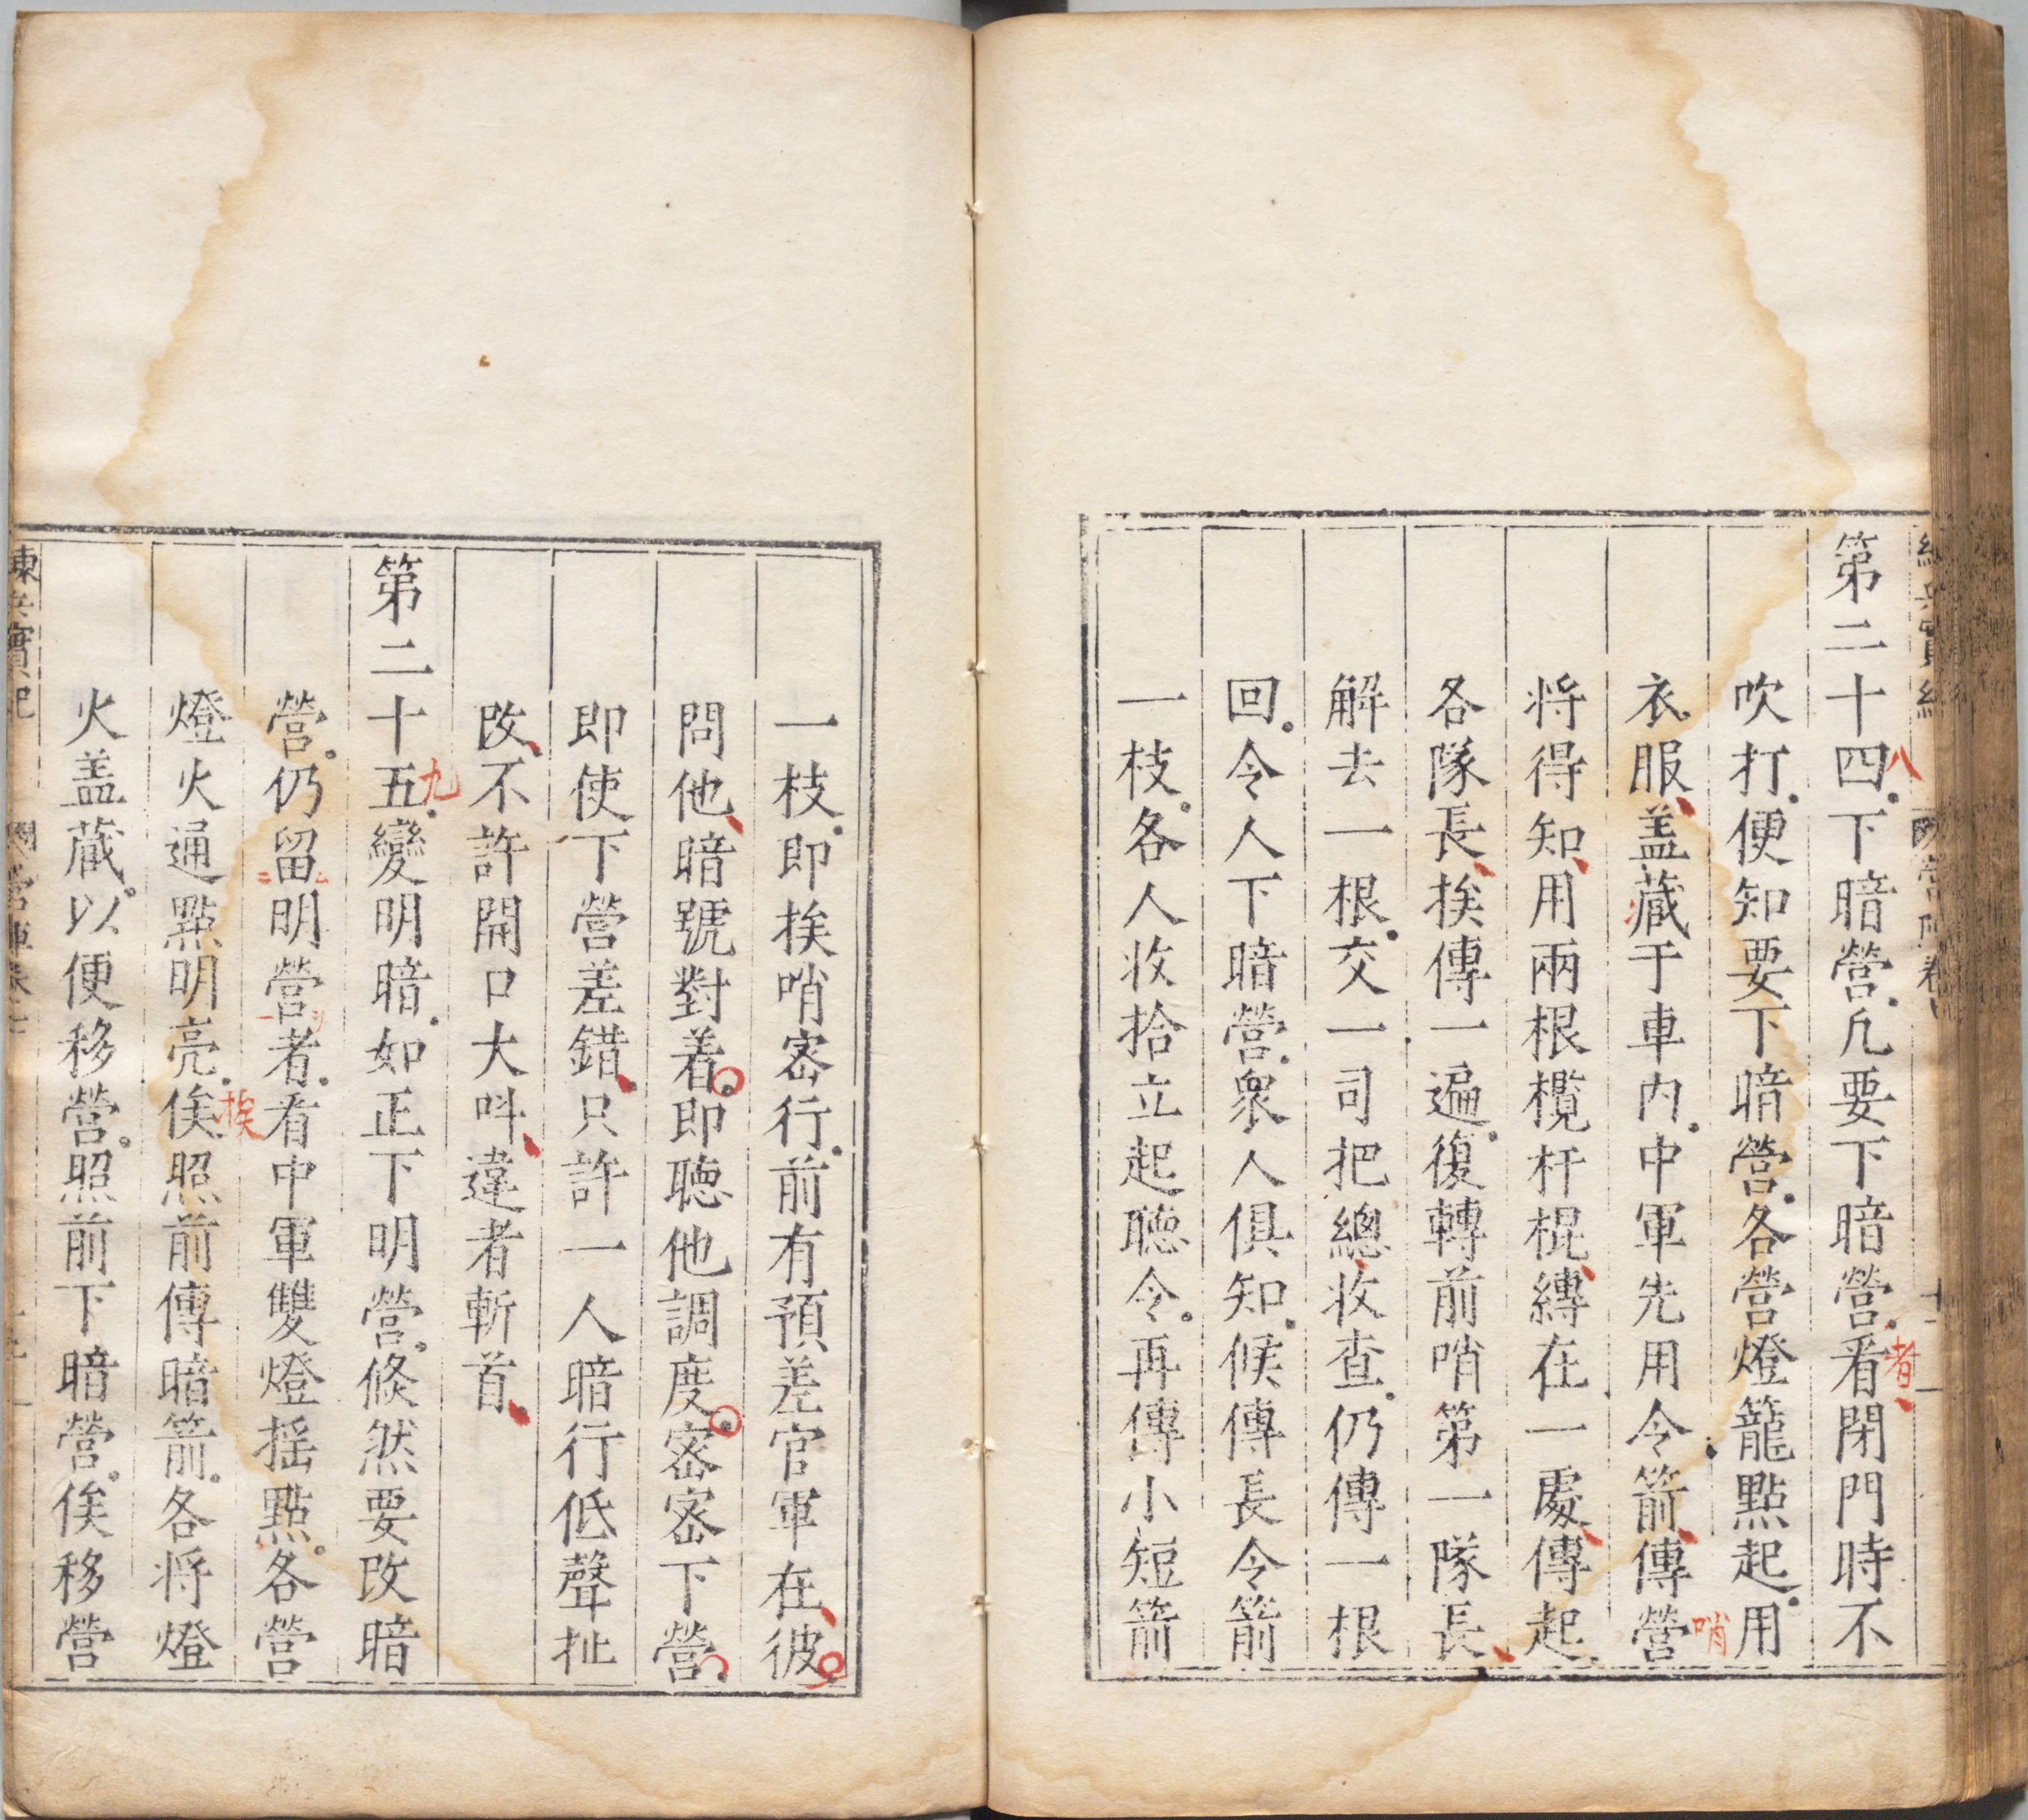 第二十四下暗營凡要下暗營看閉門時不
吹打便知要下暗營各營燈籠點起用
衣服盖藏于車内中軍先用令箭傳營
將得知用兩根欖杆棍縛在一處傳起
各隊長挨傳一遍復轉前哨第一隊長
解去一根交一司把總收查仍傳一根
回令人下暗營衆人俱知候傳長令箭
一枝各人收拾立起聽令再傳小短箭
一枝即挨哨密行前有預差官軍在彼
問他暗號對着即聽他調度密密下營
即使下營差錯只許一人暗行低聲扯
改不許開口大呌違者斬首
第二十五變明暗如正下明營倐然要改暗
營仍留明營者看中軍雙燈揺點各營
燈火通點明亮俟照前傳暗箭各將燈
火盖藏以便移營照前下暗營俟移營
八
者
哨
九
挨